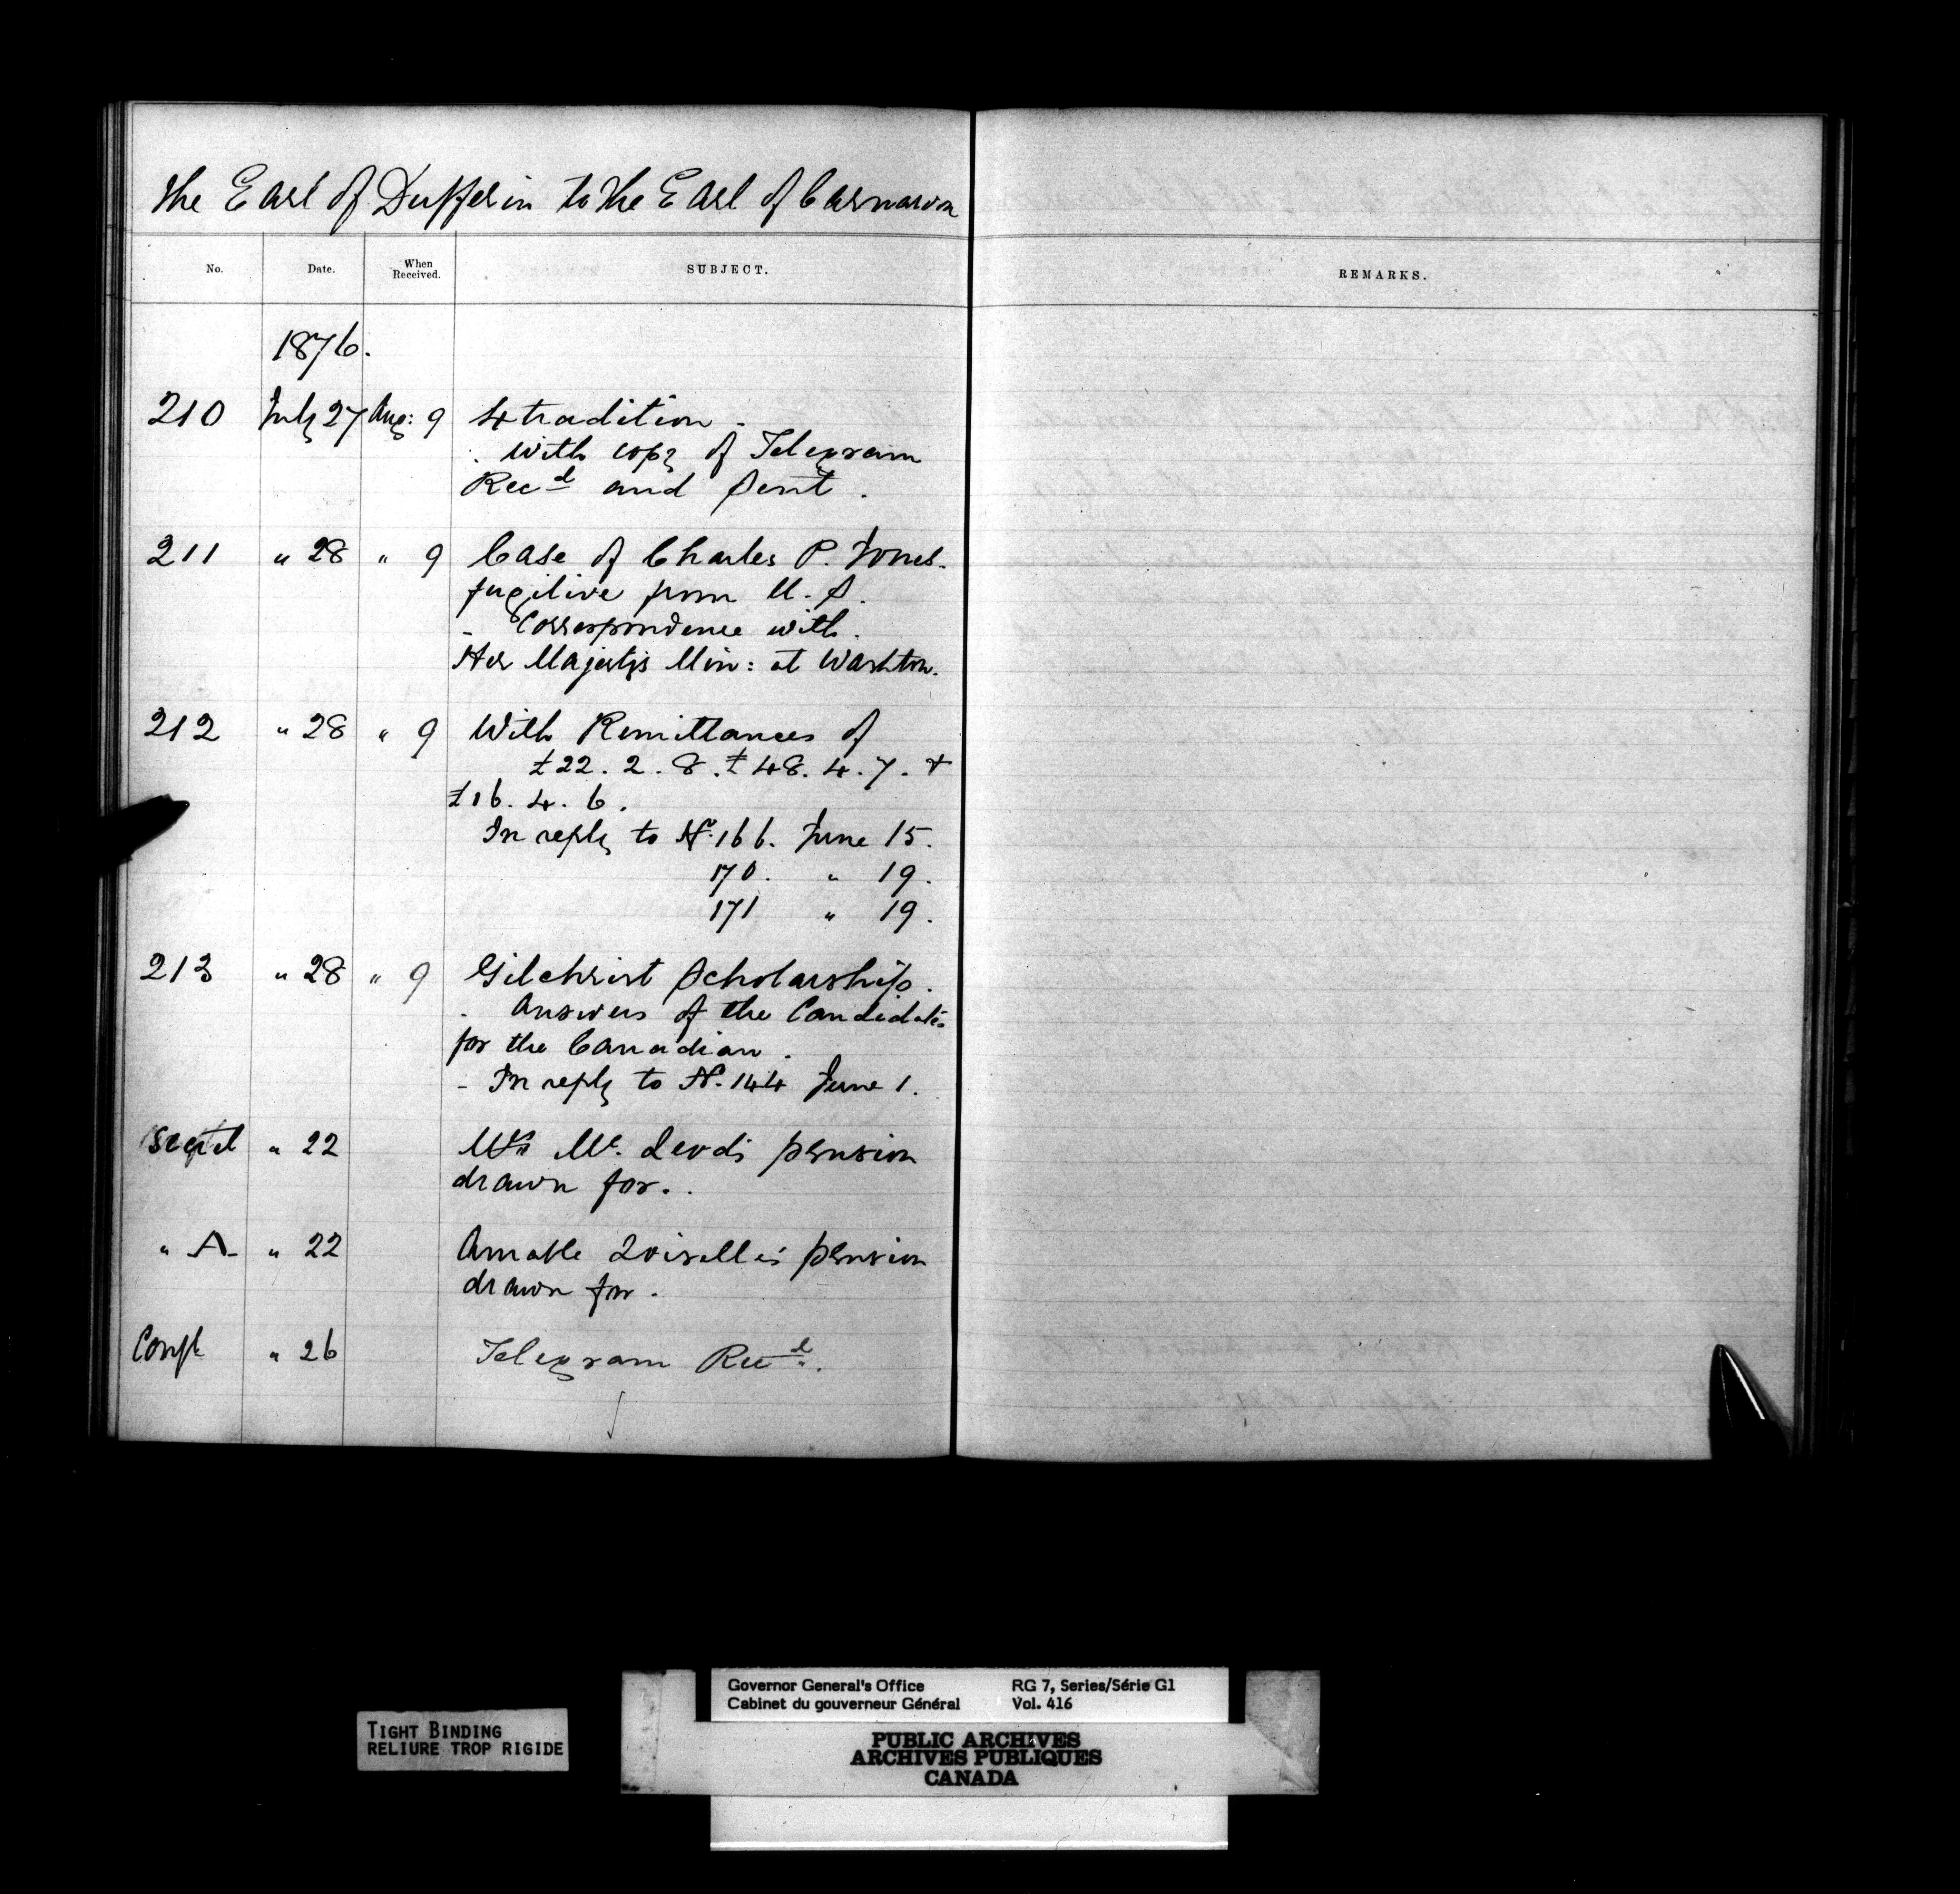 The Earl of Dufferin to the Earl of Carnarvon
No. Date. When Received. SUBJECT. REMARKS.
1876.
210 July 27 Aug: 9 Extradition -
. with copy of Telegram
Recd and Sent.
211 " 28 " 9 Case of Charles P. Jones-
fugitive from U.S.
- Correspondence with.
Her Majesty's Min: at Washton.
212 " 28 " 9 With Remittances of
£22. 2. 8. £48. 4. 7. +
£16. 4. 6.
In reply to No. 166. June 15.
170. " 19.
171 " 19.
213 " 28 " 9 Gilchrist Scholarship.
. Answers of the Candidates
for the Canadian.
- In reply to N. 144 June 1.
" 22 Mrs Mc. Leod's pension
drawn for..
" A- " 22 Amable Loiselle's pension
drawn for.
Conf " 26 Telegram Recd.
TIGHT BINDING
RELIURE TROP RIGIDE
Governor General's Office RG 7, Series/Série G1
Cabinet du gouverneur Général Vol. 416
PUBLIC ARCHIVES
ARCHIVES PUBLIQUES
CANADA